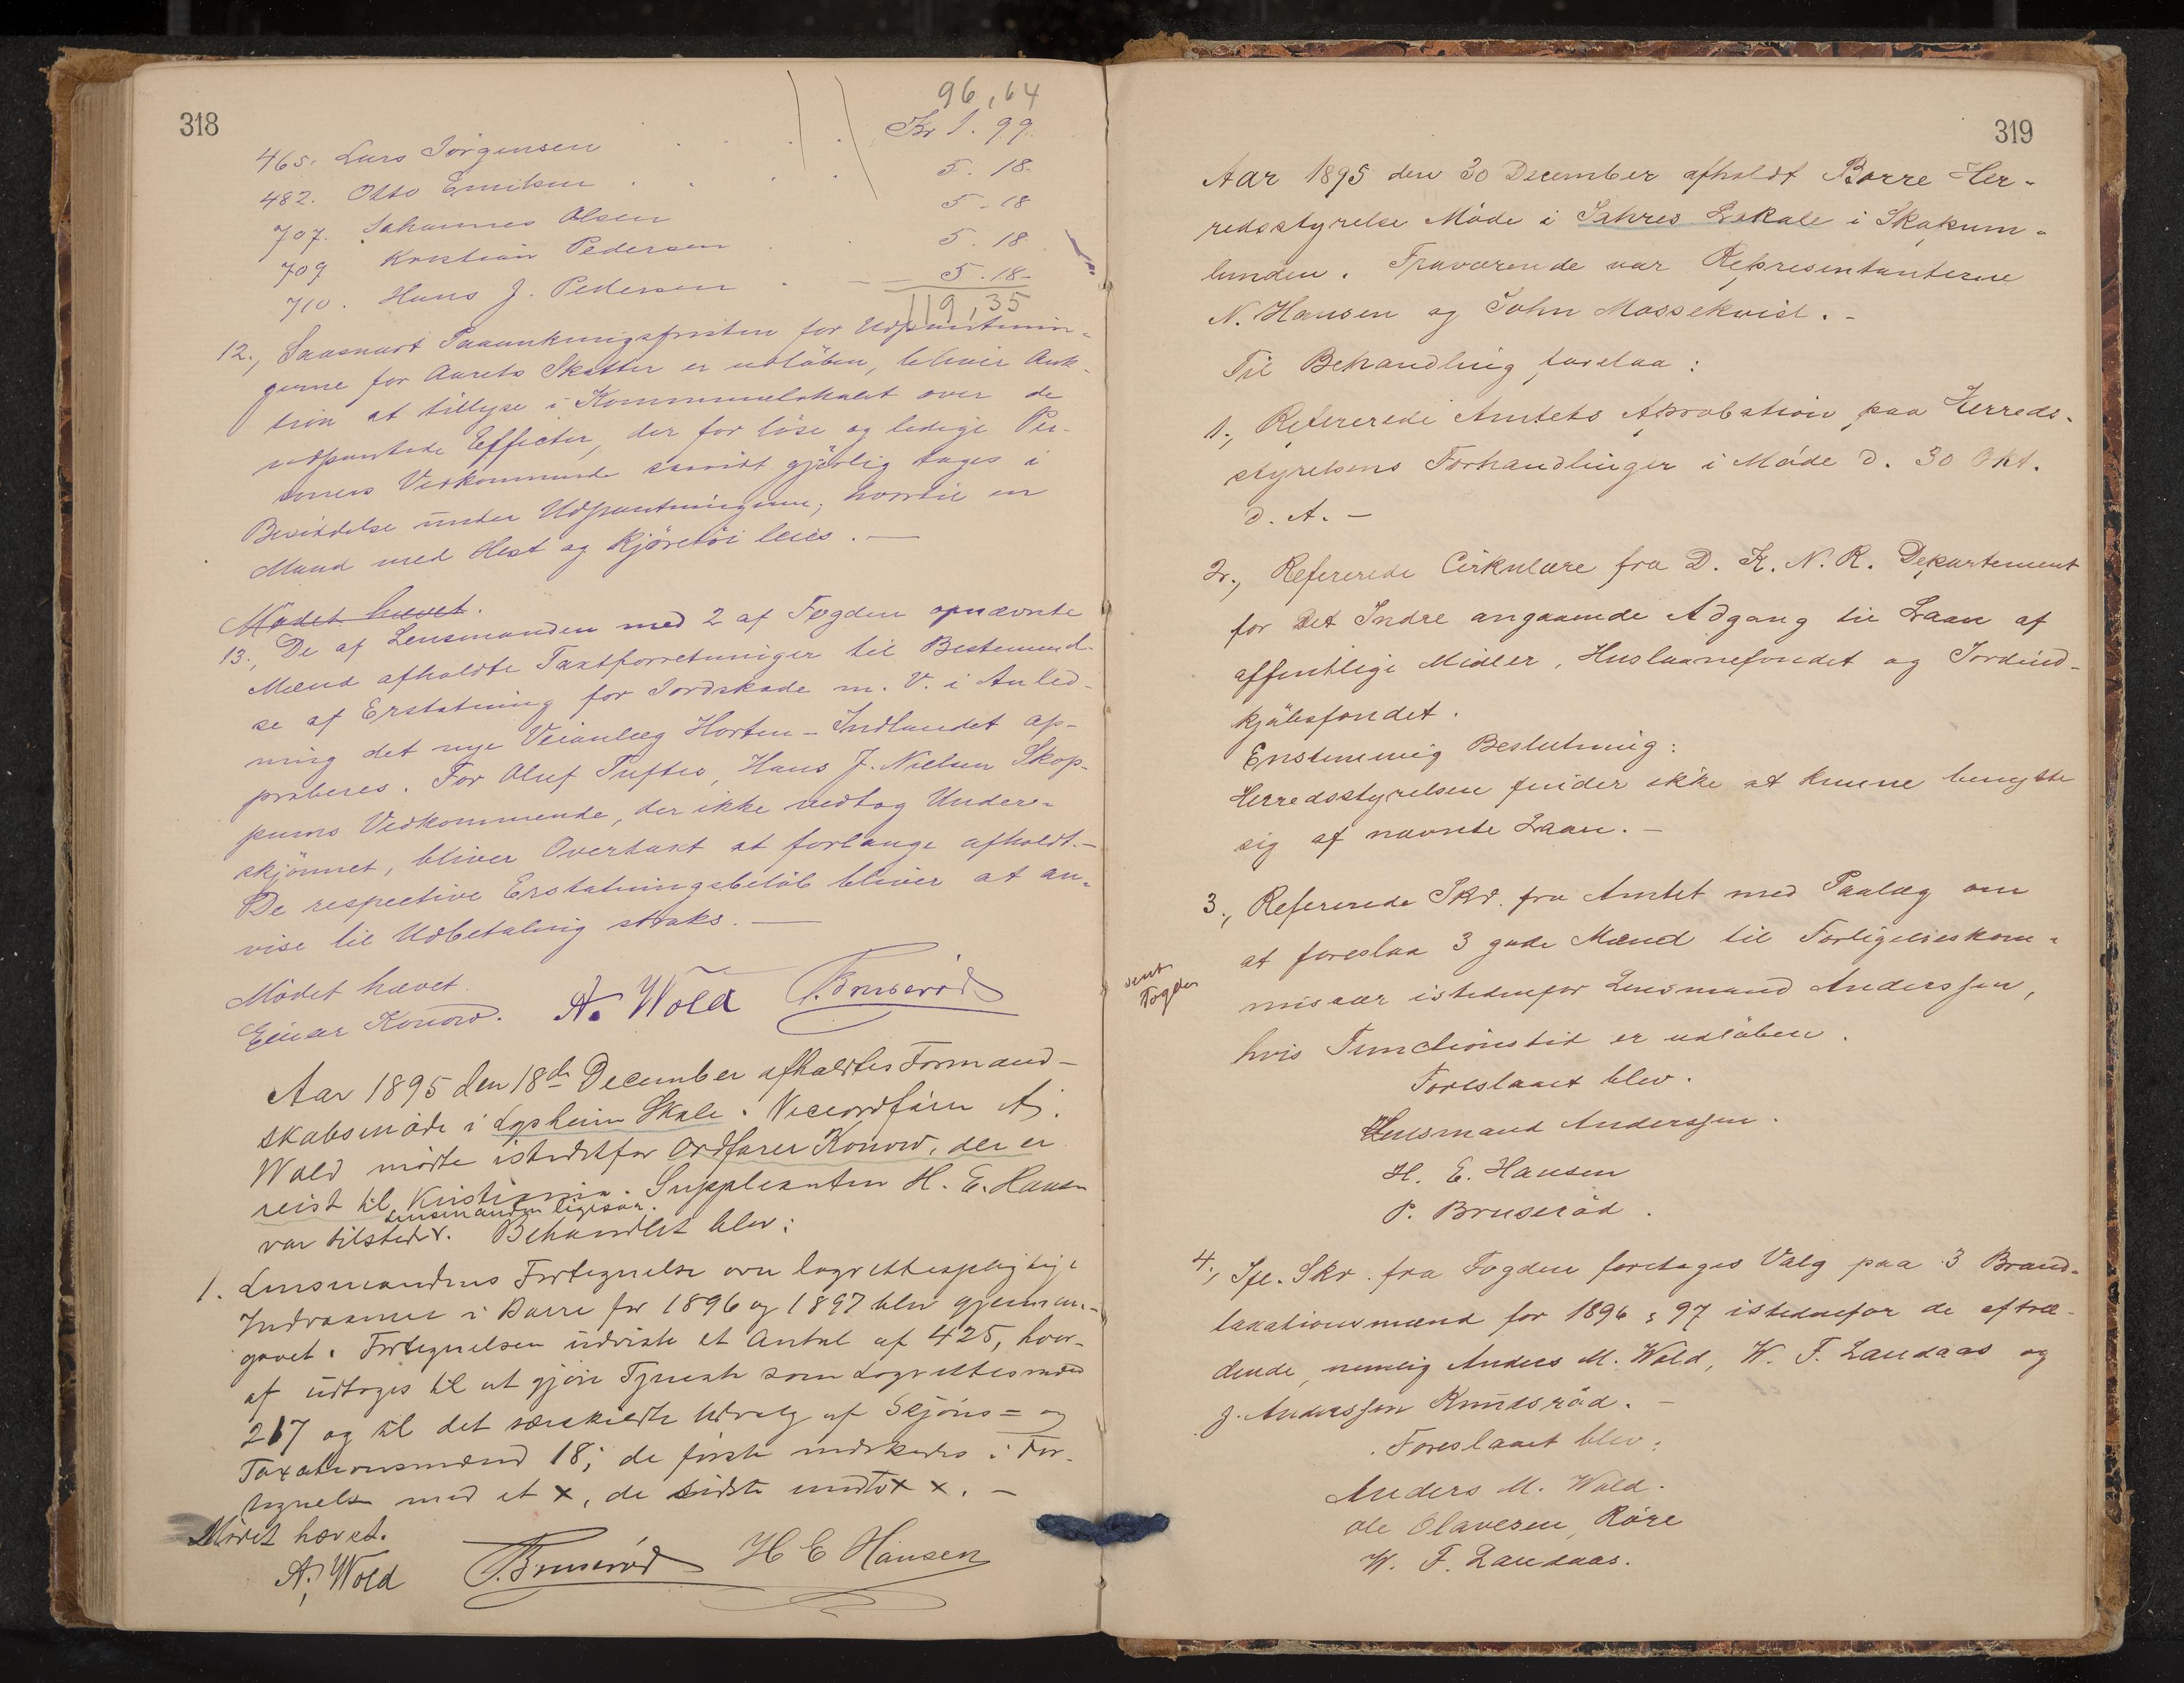 318
96,64
465. Lars Jörgensen . . . Kr 1.99.
482. Otto Emilsen . . . . 5.18.
707. Johannes Olsen 5-18
709 Kristian Pedersen . . 5.18
710. Hans J. Pedersen . — 5.18-
119,35
12., Saasnart Paaankningsfristen for Udpantnin-
gerne for Aarets Skatter er udløben, bliver Auk-
tion at tillyse i Kommunelokalet over de
udpantede Effecter, der for löse og ledige Per-
soners Vedkommende saavidt gjörlig tages i
Besiddelse under Udpantningerne, hvortil en
Mand med Hest og Kjöretöi leies. —
Mödet hævet.
13., De af Lensmanden med 2 af Fogden opnævnte
Mænd afholdte Taxtforretninger til Bestemmel-
se af Erstatning for Jordskade m. V. i Anled-
ning det nye Veianlæg Horten - Indlandet ap-
proberes. For Oluf Tuftes, Hans J. Nielsen Skop-
pums Vedkommende, der ikke vedtog Under-
skjönnet, bliver Overtaxt at forlange afholdt.—
De respective Erstatningsbelöb bliver at an-
vise til Udbetaling straks. —
Mödet hævet.
Einar Konow. A. Wold P. Bruseröd
Aar 1895 den 18de December afholdtes Formand-
skabsmöde i Lysheim Skole. Viceordförer A.
Wold mödte istedetfor Ordförer Konow, der er
reist til Kristiania. Suppleanten H. E. Hansen
Lensmanden ligesaa.
var tilstede. Behandlet blev:
1. Lensmandens Fortegnelse over lagrettepligtige
Indvaanere i Borre for 1896 og 1897 blev gjennem-
gaaet. Fortegnelsen udviste et Antal af 425, hvor-
af udtoges til at gjöre Tjeneste som Lagrettesmænd
217 og til det særskildte Udvalg af Skjöns= og
Taxationsmænd 18; de förste mærkedes i For-
tegnelsen med et x, de sidste med to x x. —
Mödet hævet.
A. Wold P. Bruseröd H E Hansen
319
Aar 1895 den 30 December afholdt Borre Her-
redsstyrelse Möde i Jahres Lokale i Skopum-
lunden. Fraværende var Repræsentanterne
N. Hansen og John Mossekvist. -
Til Behandling forelaa:
1., Refererede Amtets Approbation paa Herreds-
styrelsens Forhandlinger i Möde d. 30 Okt.
d. A. —
2., Refererede Cirkulære fra D. K. N. R. Departement
for det Indre angaaende Adgang til Laan af
offentlige Midler, Huslaanefondet og Jordind-
kjöbsfondet.
Enstemmig Beslutning:
Herredsstyrelsen finder ikke at kunne benytte
sig af nævnte Laan. —
3., Refererede Skr. fra Amtet med Paalæg om
at foreslaa 3 gode Mænd til Forligelseskom-
sent
Fogden
missær istedenfor Lensmand Anderssen,
hvis Functionstid er udlöben.
Foreslaaet blev.
Lensmand Anderssen.
H. E. Hansen
P. Bruseröd.
4., Ifl. Skr. fra Fogden foretages Valg paa 3 Brand-
taxationsmænd for 1896 & 97 istedenfor de aftræ-
dende, nemlig Anders M. Wold, W. F. Landaas og
J. Anderssen Knudsröd. —
Foreslaaet blev:
Anders M. Wold.
Ole Olavesen, Röre
W. F. Landaas.